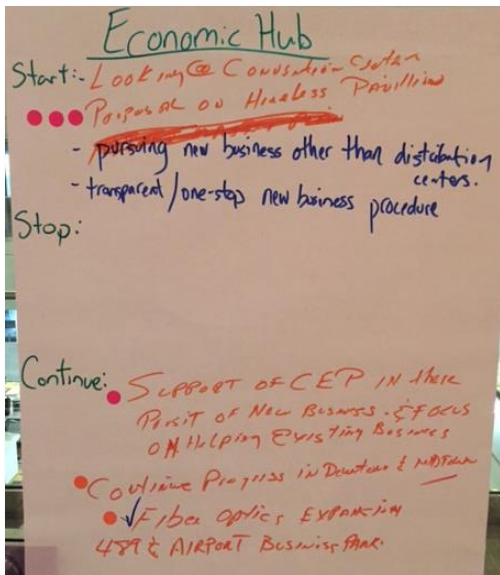 Economic Hub
Start:- Looking @ Convention Center
Proposal on Pavillion
- pursuing new business other than distribution
centers.
- transparent/one-stop new business procedure
Stop:
Continue:
Support of CEP in there
Pursit of New Business & Focus
on Helping Existing Business
Continue Progress in Downtown & Midtown
✓Fiber Optics Expansion
489 & Airport Business Park.